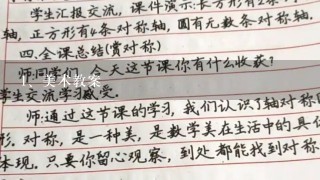 学生汇报交流,课件演示:长方形有2条
轴,正方形有4条对称轴,圆有无数条对称轴.
四.全课总结(赏对称)
师:同学们,今天这节课你有什么收获?
1. 美术教案
学生交流学习感受.
师:通过这节课的学习,我们认识了轴对称图
形.对称,是一种美,是数学美在生活中的具体
体现.只要你留心观察,到处都能找到对称